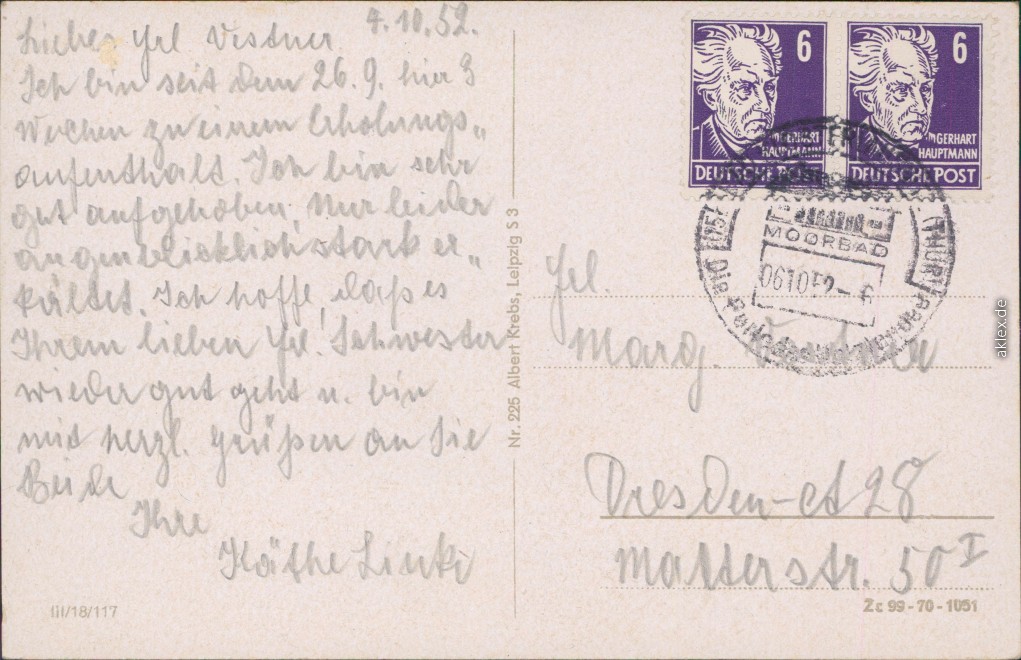 4.10.52.
Liebes Frl Vestner
Ich bin seit dem 26.9. hier 3
Wochen zu einem Erholungs„
aufenthalt. Ich bin sehr
gut aufgehoben. Nur leider
augenblicklich stark er„
kältet. Ich hoffe, daß es
Ihrem lieben Frl. Schwester
wieder gut geht u. bin
mit herzl. Grüßen an Sie
Beide
Ihre
Käthe
III/18/117
Nr. 225 Albert Krebs, Leipzig S 3
6
GERHART
HAUPTMANN
DEUTSCHE POST
6
GERHART
HAUPTMANN
DEUTSCHE POST
(15
(THÜR)
MOORBAD
06.10.52
Frl.
Marg. Vestner
Dresden-A 28
Malterstr. 50 I
Zc 99-70-1051
aklex.de